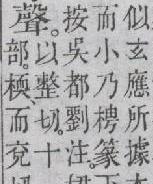 似玄應所據
而小乃梬篆
按吳都劉注。
聲。以整切。十
部。而兖